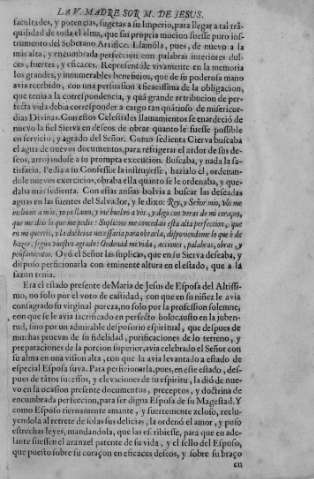 LA V. MADRE SOR M. DE JESUS.
facultades, y potencias, sugetas a su Imperio, para llegar a tal trã-
quilidad de toda el alma, que su propria mocion fuesse puro ins-
trumento del Soberano Artifice. Llamóla, pues, de nuevo a la
mas alta, y encumbrada perfeccion con palabras interiores dul-
ces, fuertes, y eficaces. Representóle vivamente en la memoria
los grandes, y innumerables beneficios, que de su poderosa mano
avia recibido, con una persuasion eficacissima de la obligacion,
que tenia a la correspondencia, y quá grande retribucion de per-
fecta vida debia corresponder a cargo tan quãtioso de misericor-
dias Divinas. Con estos Celestiales llamamientos se enardeciò de
nuevo la fiel Sierva en deseos de obrar quanto le fuesse possible
en servicio, y agrado del Señor. Como sedienta Cierva buscaba
el agua de nuevos documentos, para refrigerar el ardor de sus de-
seos, arrojandose a su prompta execucion. Buscaba, y nada la sa-
tisfacia. Pedia a su Confessor la instruyesse, hazialo èl, ordenan-
dole nuevos exercicios, obraba ella quanto se le ordenaba, y que-
daba mas sedienta. Con estas ansias bolvia a buscar las deseadas
aguas en las fuentes del Salvador, y le dixo: Rey, y Señor mio, Vos me
Oyó el Señor las suplicas, que en su Sierva deseaba, y
dispuso perficionarla con eminente altura en el estado, que a la
sazon tenia.
Era el estado presente de Maria de Jesus de Esposa del Altissi-
mo, no solo por el voto de castidad, con que en su niñez le avia
consagrado su virginal pureza, no solo por la profession solemne,
con que se le avia sacrificado en perfecto holocausto en la juben-
tud, sino por un admirable desposorio espiritual, que despues de
muchas pruevas de su fidelidad, purificaciones de lo terreno, y
preparaciones de la porcion superior, avia celebrado el Señor con
su alma en una vision alta, con que la avia levantado a estado de
especial Esposa suya. Para perficionarla, pues, en este estado, des-
pues de tãtos sucessos, y elevaciones de su espiritu, la diò de nue-
vo en la ocasion presente documentos, preceptos, y doctrina de
encumbrada perfeccion, para ser digna Esposa de su Magestad. Y
como Esposo tiernamente amante, y fuertemente zeloso, reclu-
yendola al retrete de solas sus delicias, la ordenó el amor, y puso
estrechas leyes, mandandola, que las escribiesse, para que en ade-
lante fuessen el aranzel patente de su vida, y el sello del Esposo,
que puesto sobre su coraçon en eficaces deseos, y sobre su braço
en